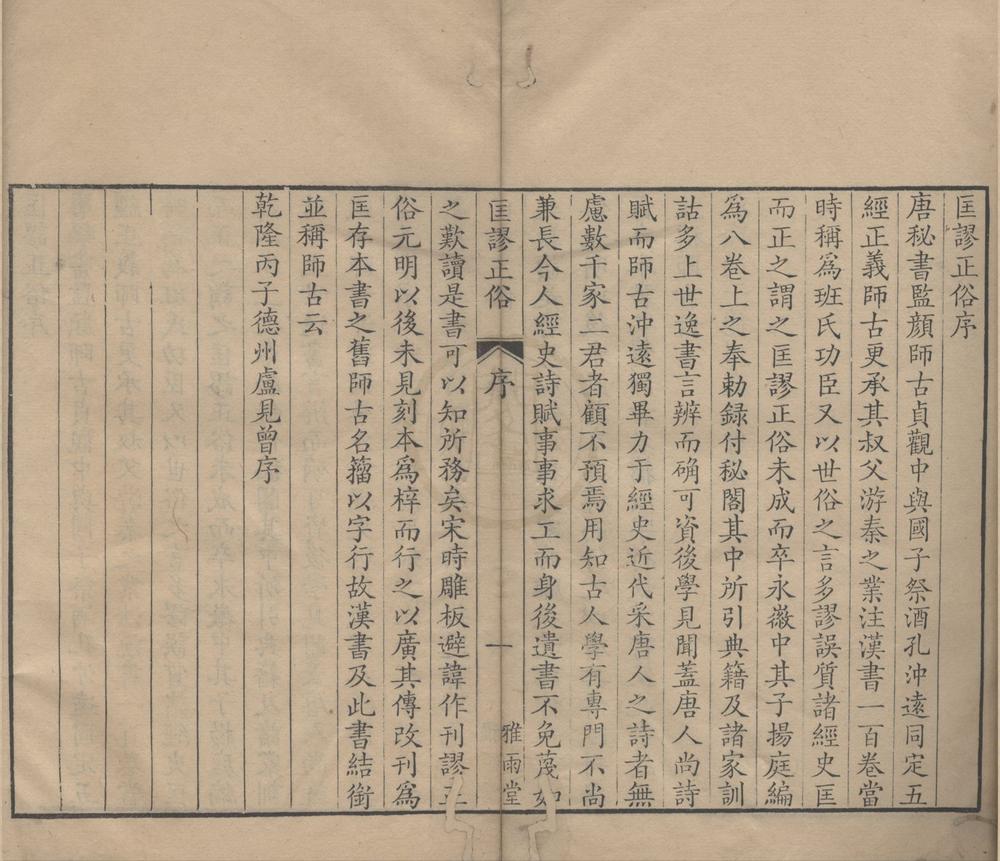 匡謬正俗序
唐秘書監顔師古貞觀中與國子祭酒孔沖遠同定五
經正義師古更承其叔父游秦之業注漢書一百卷當
時稱爲班氏功臣又以世俗之言多謬誤質諸經史匡
而正之謂之匡謬正俗未成而卒永徽中其子揚庭編
爲八卷上之奉勅録付秘閣其中所引典籍及諸家訓
詁多上世逸書言辨而确可資後學見聞蓋唐人尚詩
賦而師古沖遠獨畢力于經史近代采唐人之詩者無
慮數千家二君者顧不預焉用知古人學有專門不尚
兼長今人經史詩賦事事求工而身後遺書不免蔑如
匡謬正俗 序 一 雅雨堂
之歎讀是書可以知所務矣宋時雕板避諱作刊謬正
俗元明以後未見刻本爲梓而行之以廣其傳改刊爲
匡存本書之舊師古名籀以字行故漢書及此書結銜
並稱師古云
乾隆丙子德州盧見曾序